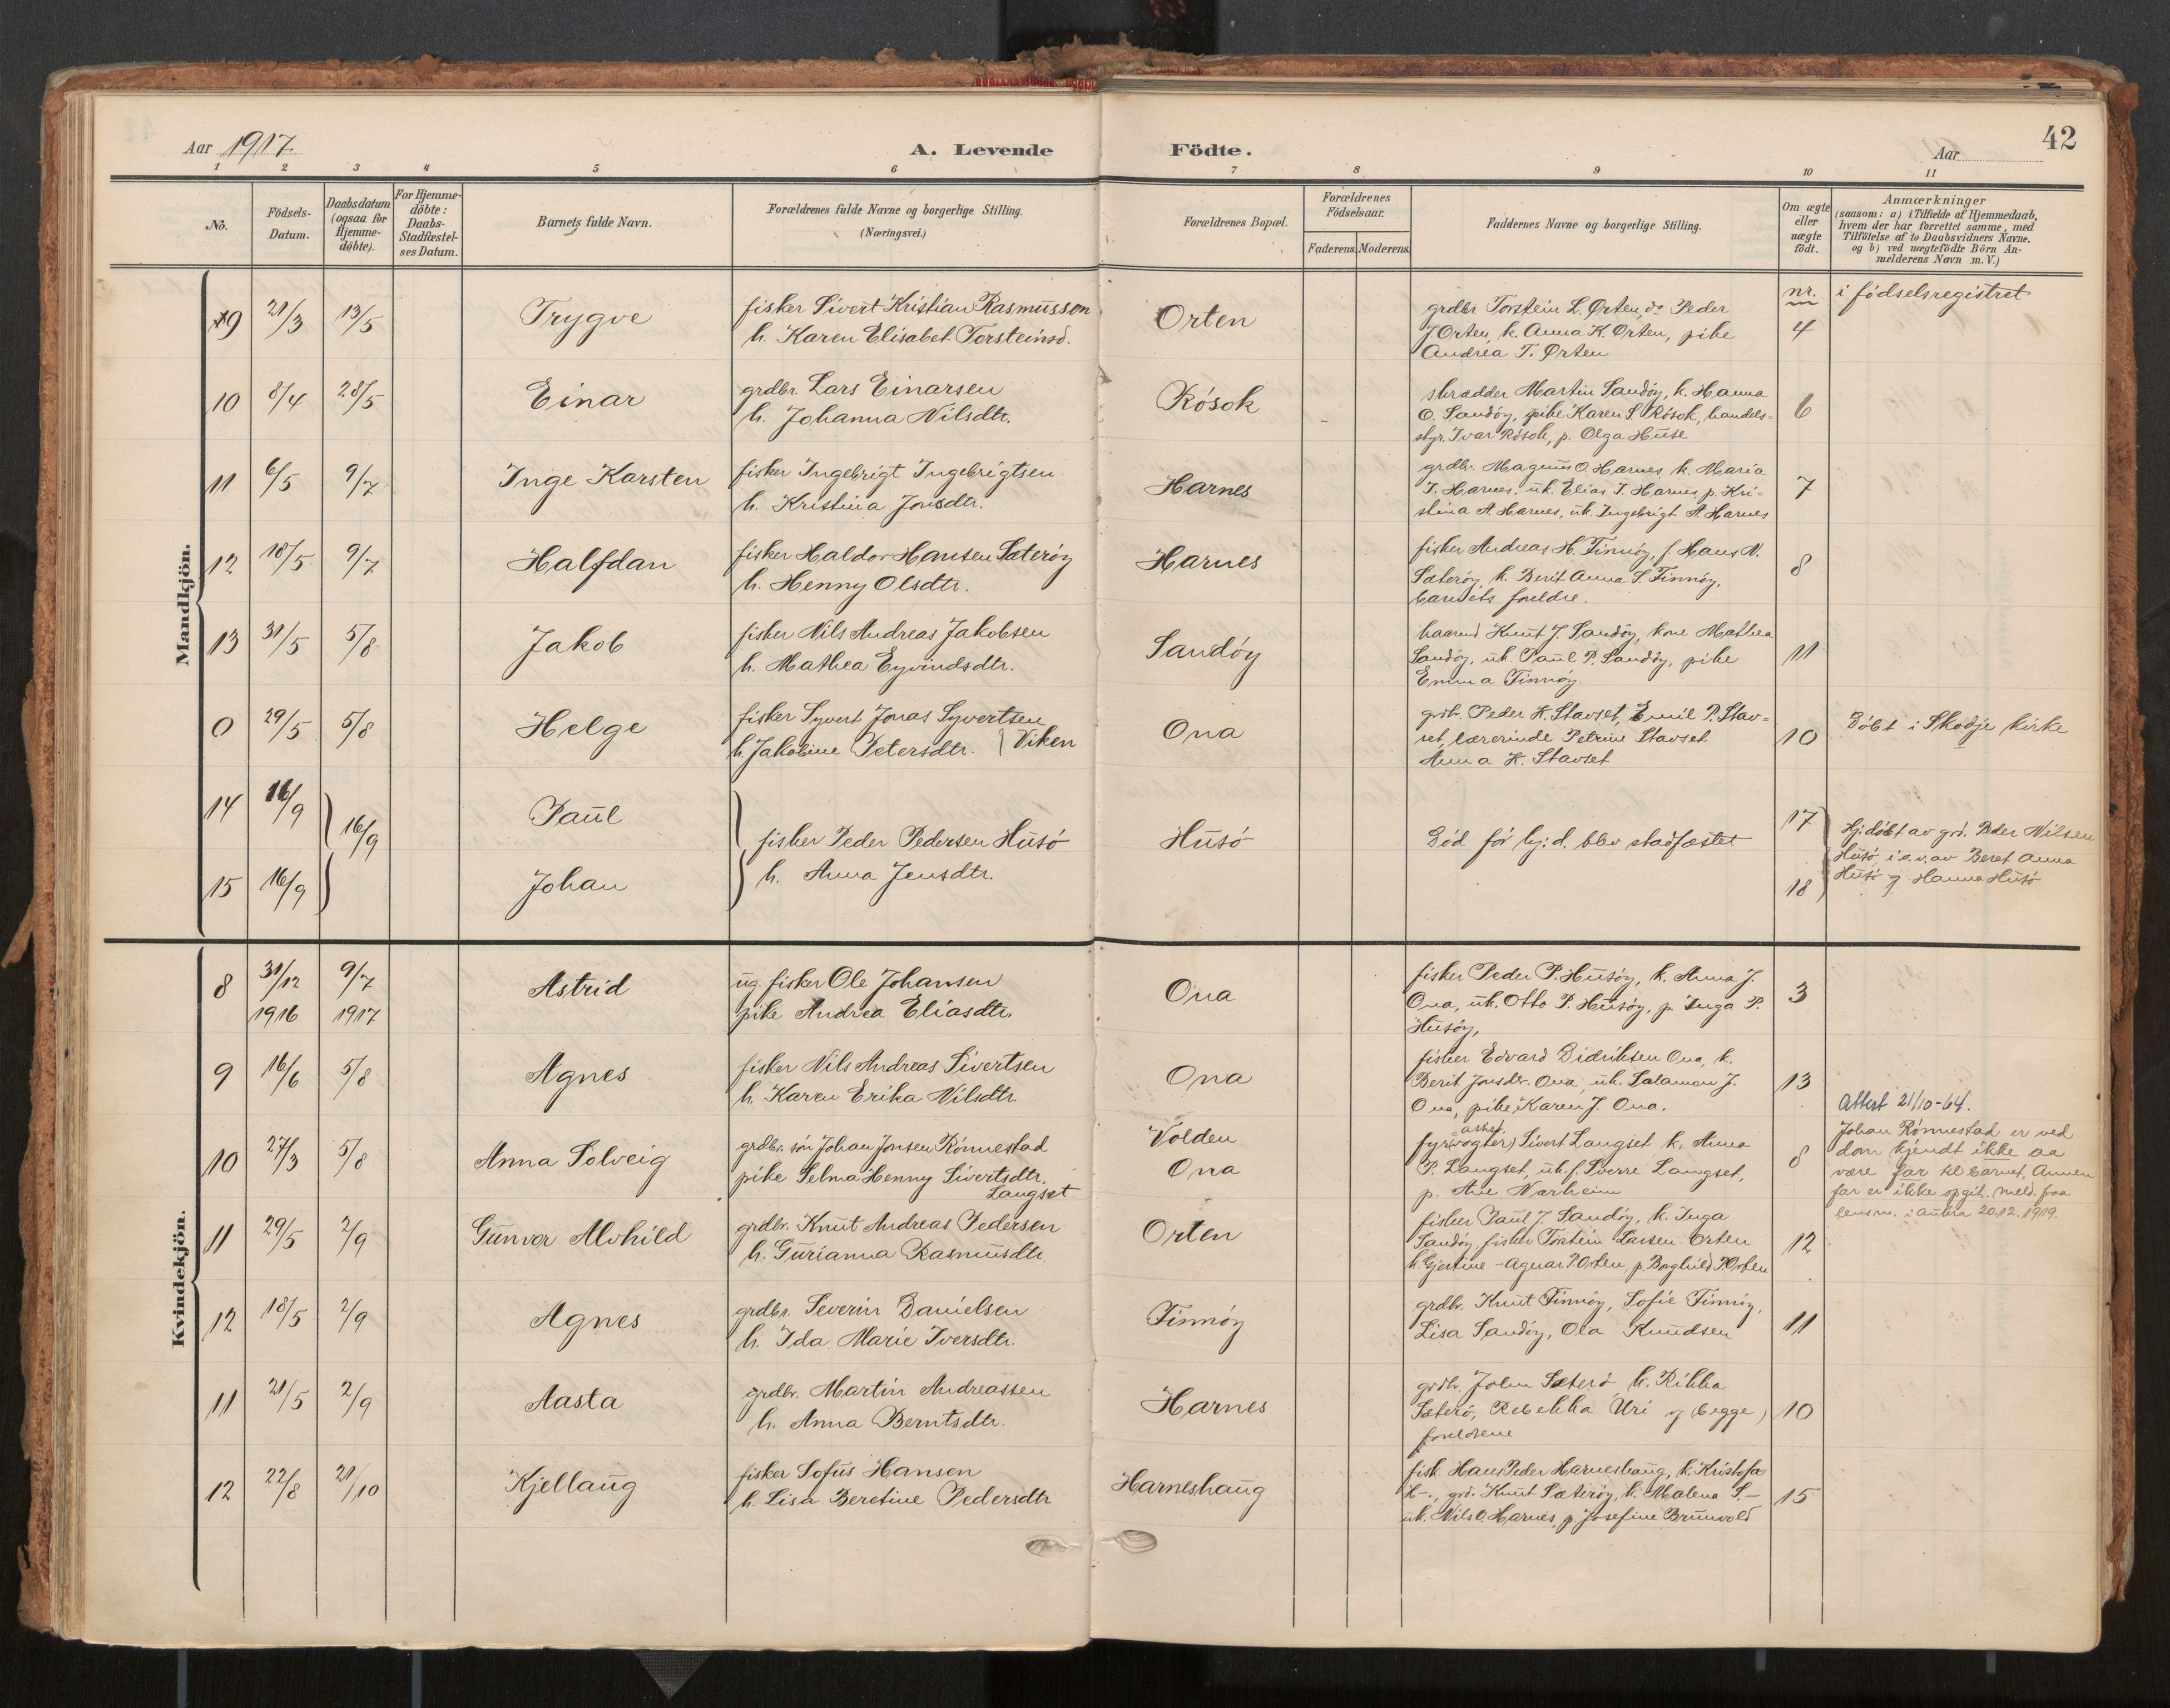 42
Aar 1917
A. Levende Födte.
Aar
1 2 3 4 5 6 7 8 9 10 11
No.
Födsels-
Datum.
Daabsdatum
(ogsaa for
Hjemme-
döbte).
For Hjemme-
döbte:
Daabs-
Stadfæstel-
ses Datum.
Barnets fulde Navn.
Forældrenes fulde Navne og borgerlige Stilling.
(Næringsvei.)
Forældrenes Bopæl.
Forældrenes
Födselsaar.
Faderens. Moderens.
Faddernes Navne og borgerlige Stilling.
Om ægte
eller
uægte
födt.
Anmærkninger
(saasom: a) i Tilfælde af Hjemmedaab,
hvem der har forrettet samme, med
Tilföielse af to Daabsvidners Navne.
og b) ved uægtefödte Börn An-
melderens Navn m. V.)
Mandkjön.
9 21/3 13/5 Trygve
fisker Sivert Kristian Rasmussen
h. Karen Elisabet Torsteinsd.
Orten
grdbr Torstein L. Orten, do Peder
J Orten, k. Anna K. Orten, pike
Andrea T. Orten
nr. i fødselsregistret
4
10 8/4 28/5 Einar
grdbr. Lars Einarsen
h. Johanna Nilsdtr.
Rósok
skrædder Martin Sandöy, k. Hanna
O. Sandöy, pike Karen S. Rösok, handels-
styr. Ivar Rösok, p. Olga Huse
6
11 6/5 9/7 Inge Karsten
fisker Ingebrigt Ingebrigtsen
h. Kristina Jonsdtr.
Harnes
grdbr. Magnus O. Harnes k. Maria
I. Harnes. uk. Elias I. Harnes p. Kri-
stina A. Harnes, uk. Ingebrigt A. Harnes
7
12 18/5 9/7 Halfdan
fisker Haldor Hansen Sæteröy
h. Henny Olsdtr.
Harnes
fisker Andreas H. Finnöy, f. Hans N.
Sæteröy, k. Berit Anna S. Finnöy,
barnets foreldre.
8
13 31/5 5/8 Jakob
fisker Nils Andreas Jakobsen
h. Mathea Eyvindsdtr.
Sandöy
Knut J. Sandöy, kone Mathea
Sandöy, uk. Paul P. Sandöy, pike
Emma Finnöy
11
0 29/5 5/8 Helge
fisker Syvert Jonas Syvertsen
h. Jakobine Petersdtr. } Viken
Ona
Peder K. Stavset, Emil P. Stav-
set, lærerinde Petrine Stavset
Anna K. Stavset
10
Döbt i Skodje kirke
14 16/9 } 16/9 Paul
15 16/9 Johan
fisker Peder Pedersen Husó
h. Anna Jensdtr.
Husó
Död för hj:d. blev stadfæstet
17
18
Hj:döbt av grd. Peder Nilsen
Husö, i o.v. av Beret Anna
Husö og Hanna Husö
Kvindekjön.
8 31/12 1916 9/7 1917 Astrid
ug. fisker Ole Johansen
pike Andrea Eliasdtr.
Ona
fisker Peder P. Husöy, k. Anna J.
Ona, uk. Otto P. Husöy, p. Inga P.
Husöy,
3
9 16/6 5/8 Agnes
fisker Nils Andreas Sivertsen
h. Karen Erika Nilsdtr.
Ona
fisker Edvard Didriksen Ona, k.
Berit Jonsdr. Ona, uk. Salamon J.
Ona, pike Karen J. Ona.
13
10 27/3 5/8 Anna Solveig
grdbr. sön Johan Jonsen Rönnestad
pike Selma Henny Sivertsdtr.
Langset
Volden
Ona
fyr(vogter) Sivert Langset k. Anna
P. Langset, uk. f. Sverre Langset,
p. Ane Nærheim
8
Attest 21/10-64.
Johan Rønnestad er ved
dom kjendt ikke aa
være far til barnet, Annen
far er ikke opgit. Meld. fra
lensm. i Aukra 20.12.1919.
11 29/5 2/9 Gunvor Alvhild
grdbr. Knut Andreas Pedersen
h. Gurianna Rasmusdtr.
Orten
fisker Paul J. Sandöy, k. Inga
Sandöy, fisker Torstein Larsen Orten
k. Gjertine-Agnar P. Orten, p. Borghild P. Orten
12
12 18/5 2/9 Agnes
grdbr. Severin Danielsen
h. Ida Marie Iversdtr.
Finnöy
grdbr. Knut Finnöy, Sofie Finnöy,
Lisa Sandöy, Ola Knudsen
11
11 21/5 2/9 Aasta
grdbr. Martin Andreassen
h. Anna Berntsdtr.
Harnes
grdbr. John Sæterö, k. Rikka
Sæterö, Rebekka Uri og (begge)
foreldrene
10
12 22/8 21/10 Kjellaug
fisker Sofus Hansen
h. Lisa Beretine Pedersdtr
Harneshaug
fisk. Hans Peder Harneshaug, k. Kristofa
H-., grd. Knut Sæteröy, k. Malena S.-
uk. Nils O. Harnes, p Josefine Brunvold
15